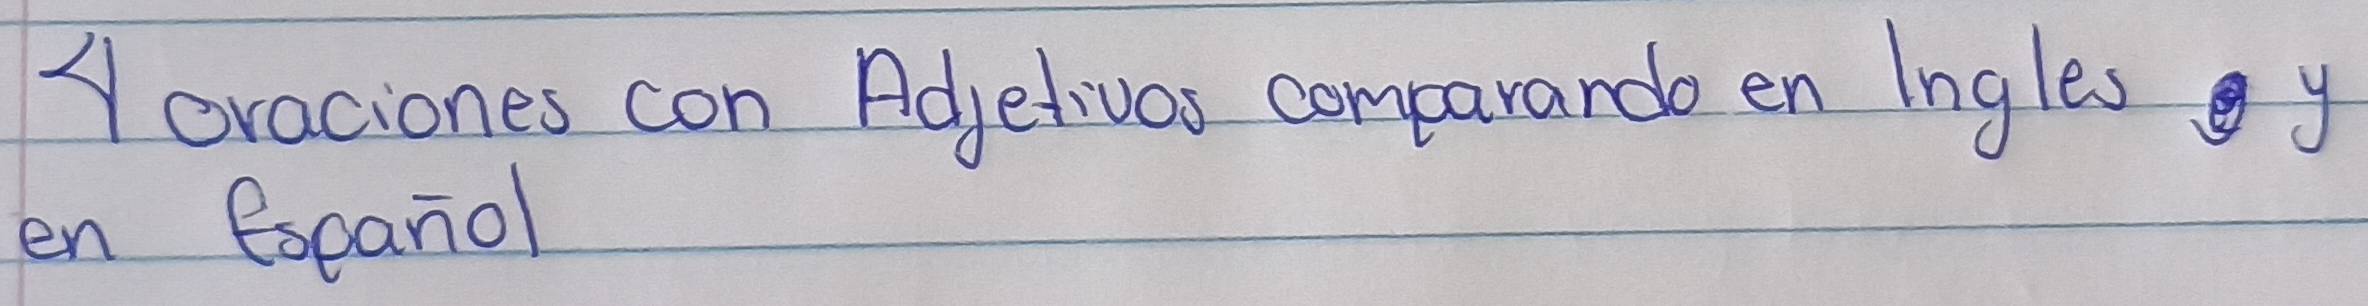 4 oraciones con Adjetivos comparando en Ingles y
en Español